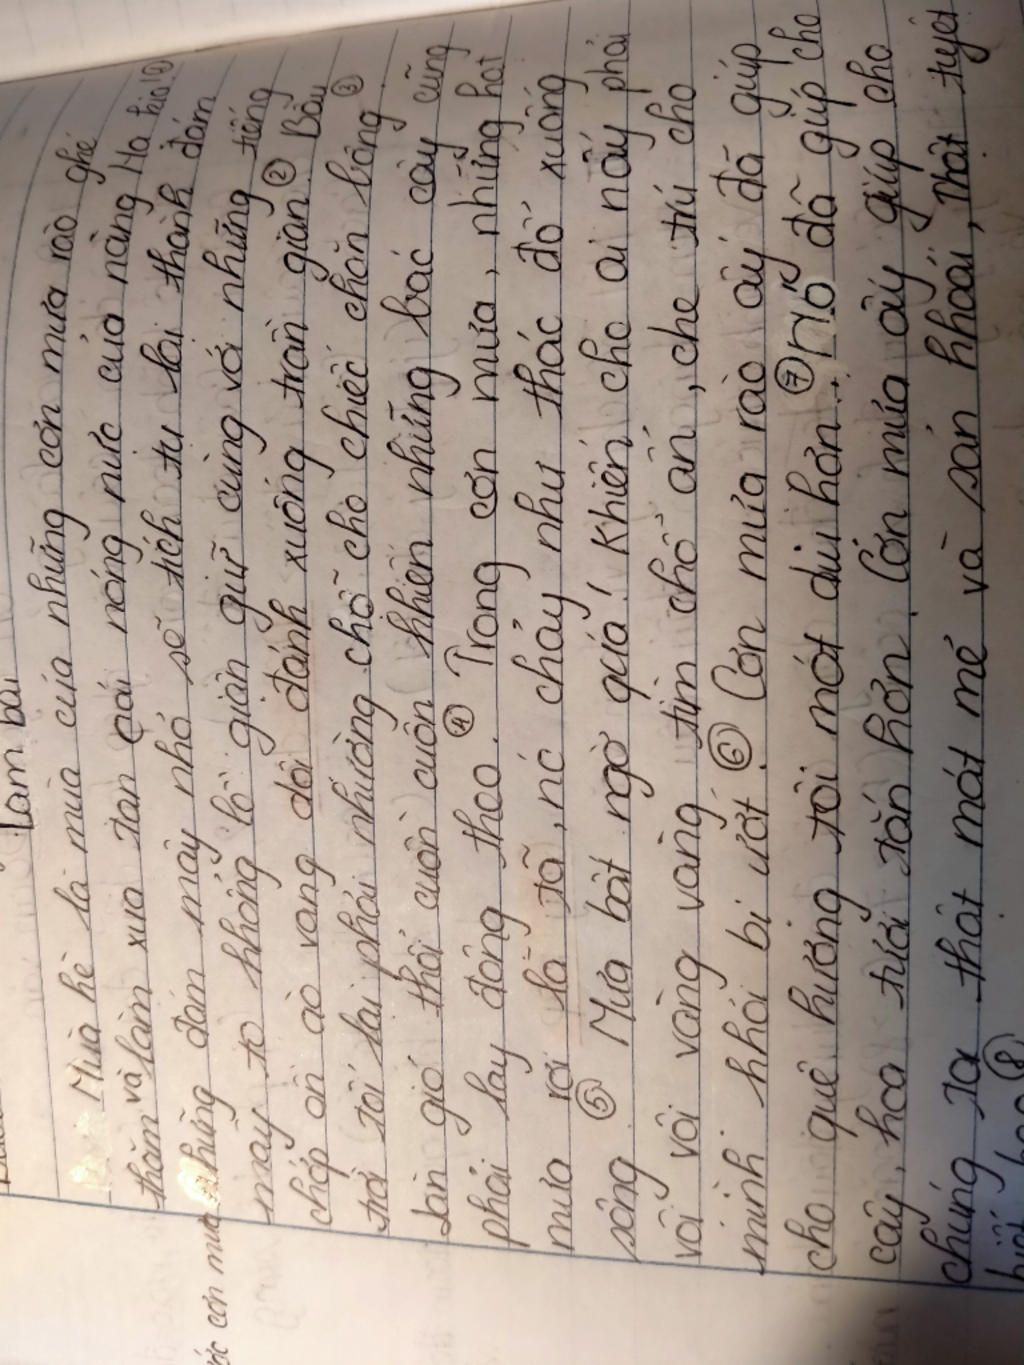 Làm bài
Mùa hè là mùa của những cơn mưa rào ghé
thăm và làm xua tan cái nóng nực của nàng Hạ kia! ①
Những đám mây nhỏ sẽ tích tụ lại thành đám
mây to khổng lồ giận giữ cùng với những tiếng
chớp ồn ào vang dội đánh xuống trần gian. ② Bầu
trời tối lại phải nhường chỗ cho chiếc chăn bông. ③
Làn gió thổi cuồn cuộn khiến những bác cây cũng
phải lay động theo. ④ Trong cơn mưa, những hạt
mưa rơi lã tã, nó chảy như thác đổ xuống
sông. ⑤ Mưa bất ngờ quá! Khiến cho ai nấy phải
vội vội vàng vàng tìm chỗ ẩn, che trú cho
mình khỏi bị ướt. ⑥ Cơn mưa rào ấy đã giúp
cho quê hương tôi mát dịu hơn... ⑦ Nó đã giúp cho
cây, hoa tươi tắn hơn. Cơn mưa ấy giúp cho
chúng ta thật mát mẻ và sản khoái, thật tuyệt
ớc cơn mưa
⑧